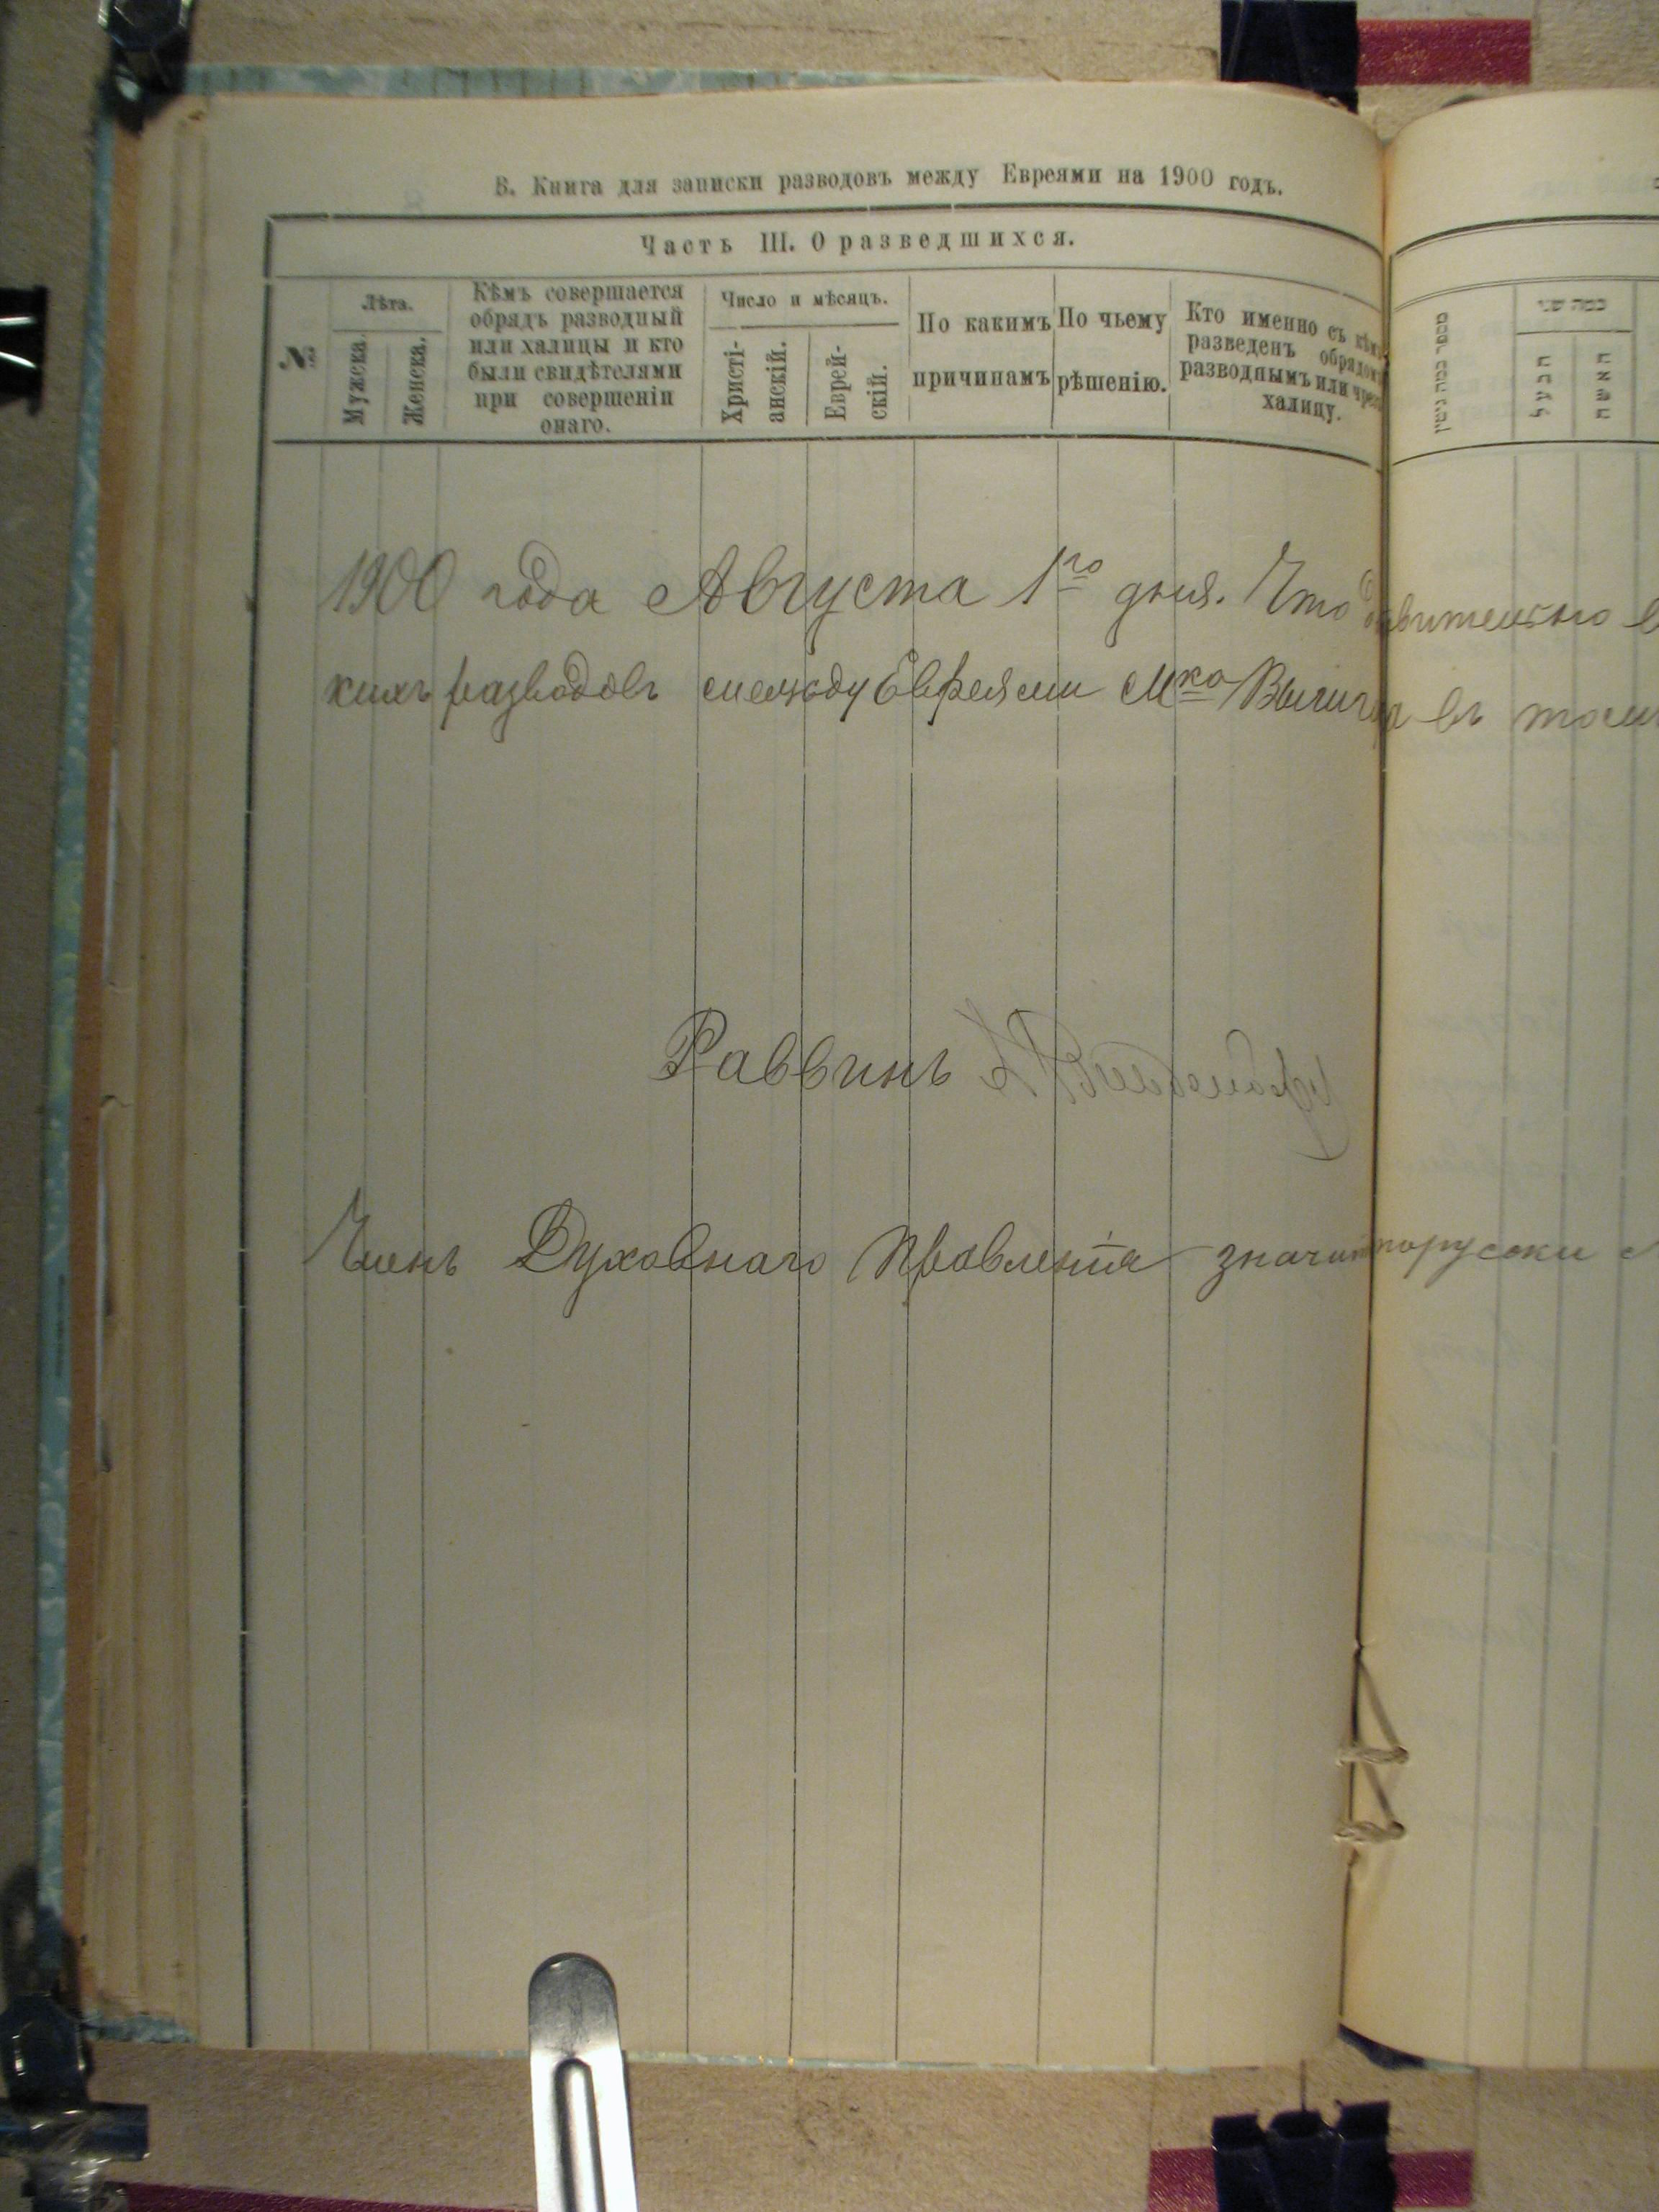 В. Книга для записки разводовъ между Евреями на 1900 годъ.
Часть III. О разведшихся.
№
Лѣта.
Мужска.
Женска.
Кѣмъ совершается
обрядъ разводный
или халицы и кто
были свидѣтелями
при совершеніи
онаго.
Число и мѣсяцъ.
Христі-
анскій.
Еврей-
скій.
По какимъ
причинамъ
По чьему
рѣшенію.
Кто именно съ кѣмъ
разведенъ обрядомъ
разводнымъ или чрезъ
халицу.
כמה שני
הבעל
האשה
1900 года Августа 1го дня. Что
кихъ разводовъ между Евреями Мка въ
Раввинъ
Членъ Духовнаго Правленія значитъ порусски